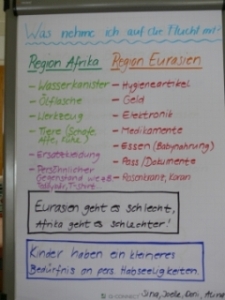 Was nehme ich auf die Flucht mit?
Region Afrika
Region Eurasien
- Wasserkanister
- Ölflasche
- Werkzeug
- Tiere (Schafe, Affe, Kuh..)
- Ersatzkleidung
- Persönlicher
Gegenstand wie z.B.
- Hygieneartikel
- Geld
- Elektronik
- Medikamente
- Essen (Babynahrung)
- Pass/Dokumente
- Rosenkranz, Koran
Eurasien geht es schlecht,
Afrika geht es schlechter!
Kinder haben ein kleineres
Bedürfnis an pers. Habseeligkeiten.